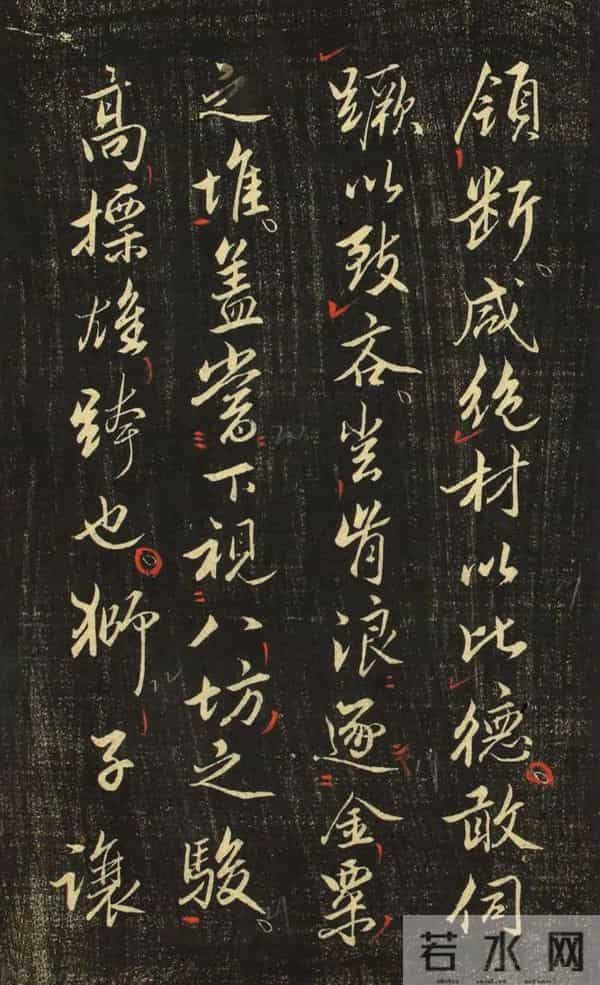 領断咸絶材以比德敢伺
蹶以致吝豈肯浪逐金粟
之堆盖當下視八坊之駿
高摽雄跨也獅子讓
若水网